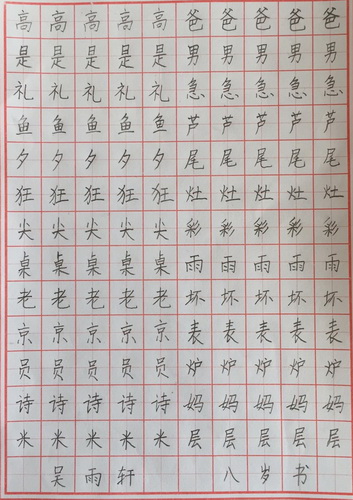 高高高高高爸爸爸爸爸
是是是是是男男男男男
礼礼礼礼礼急急急急急
鱼鱼鱼鱼鱼芦芦芦芦芦
夕夕夕夕夕尾尾尾尾尾
狂狂狂狂狂灶灶灶灶灶
尖尖尖尖尖彩彩彩彩彩
桌桌桌桌桌雨雨雨雨雨
老老老老老坏坏坏坏坏
京京京京京表表表表表
员员员员员炉炉炉炉炉
诗诗诗诗诗妈妈妈妈妈
米米米米米层层层层层
吴雨轩 八岁书